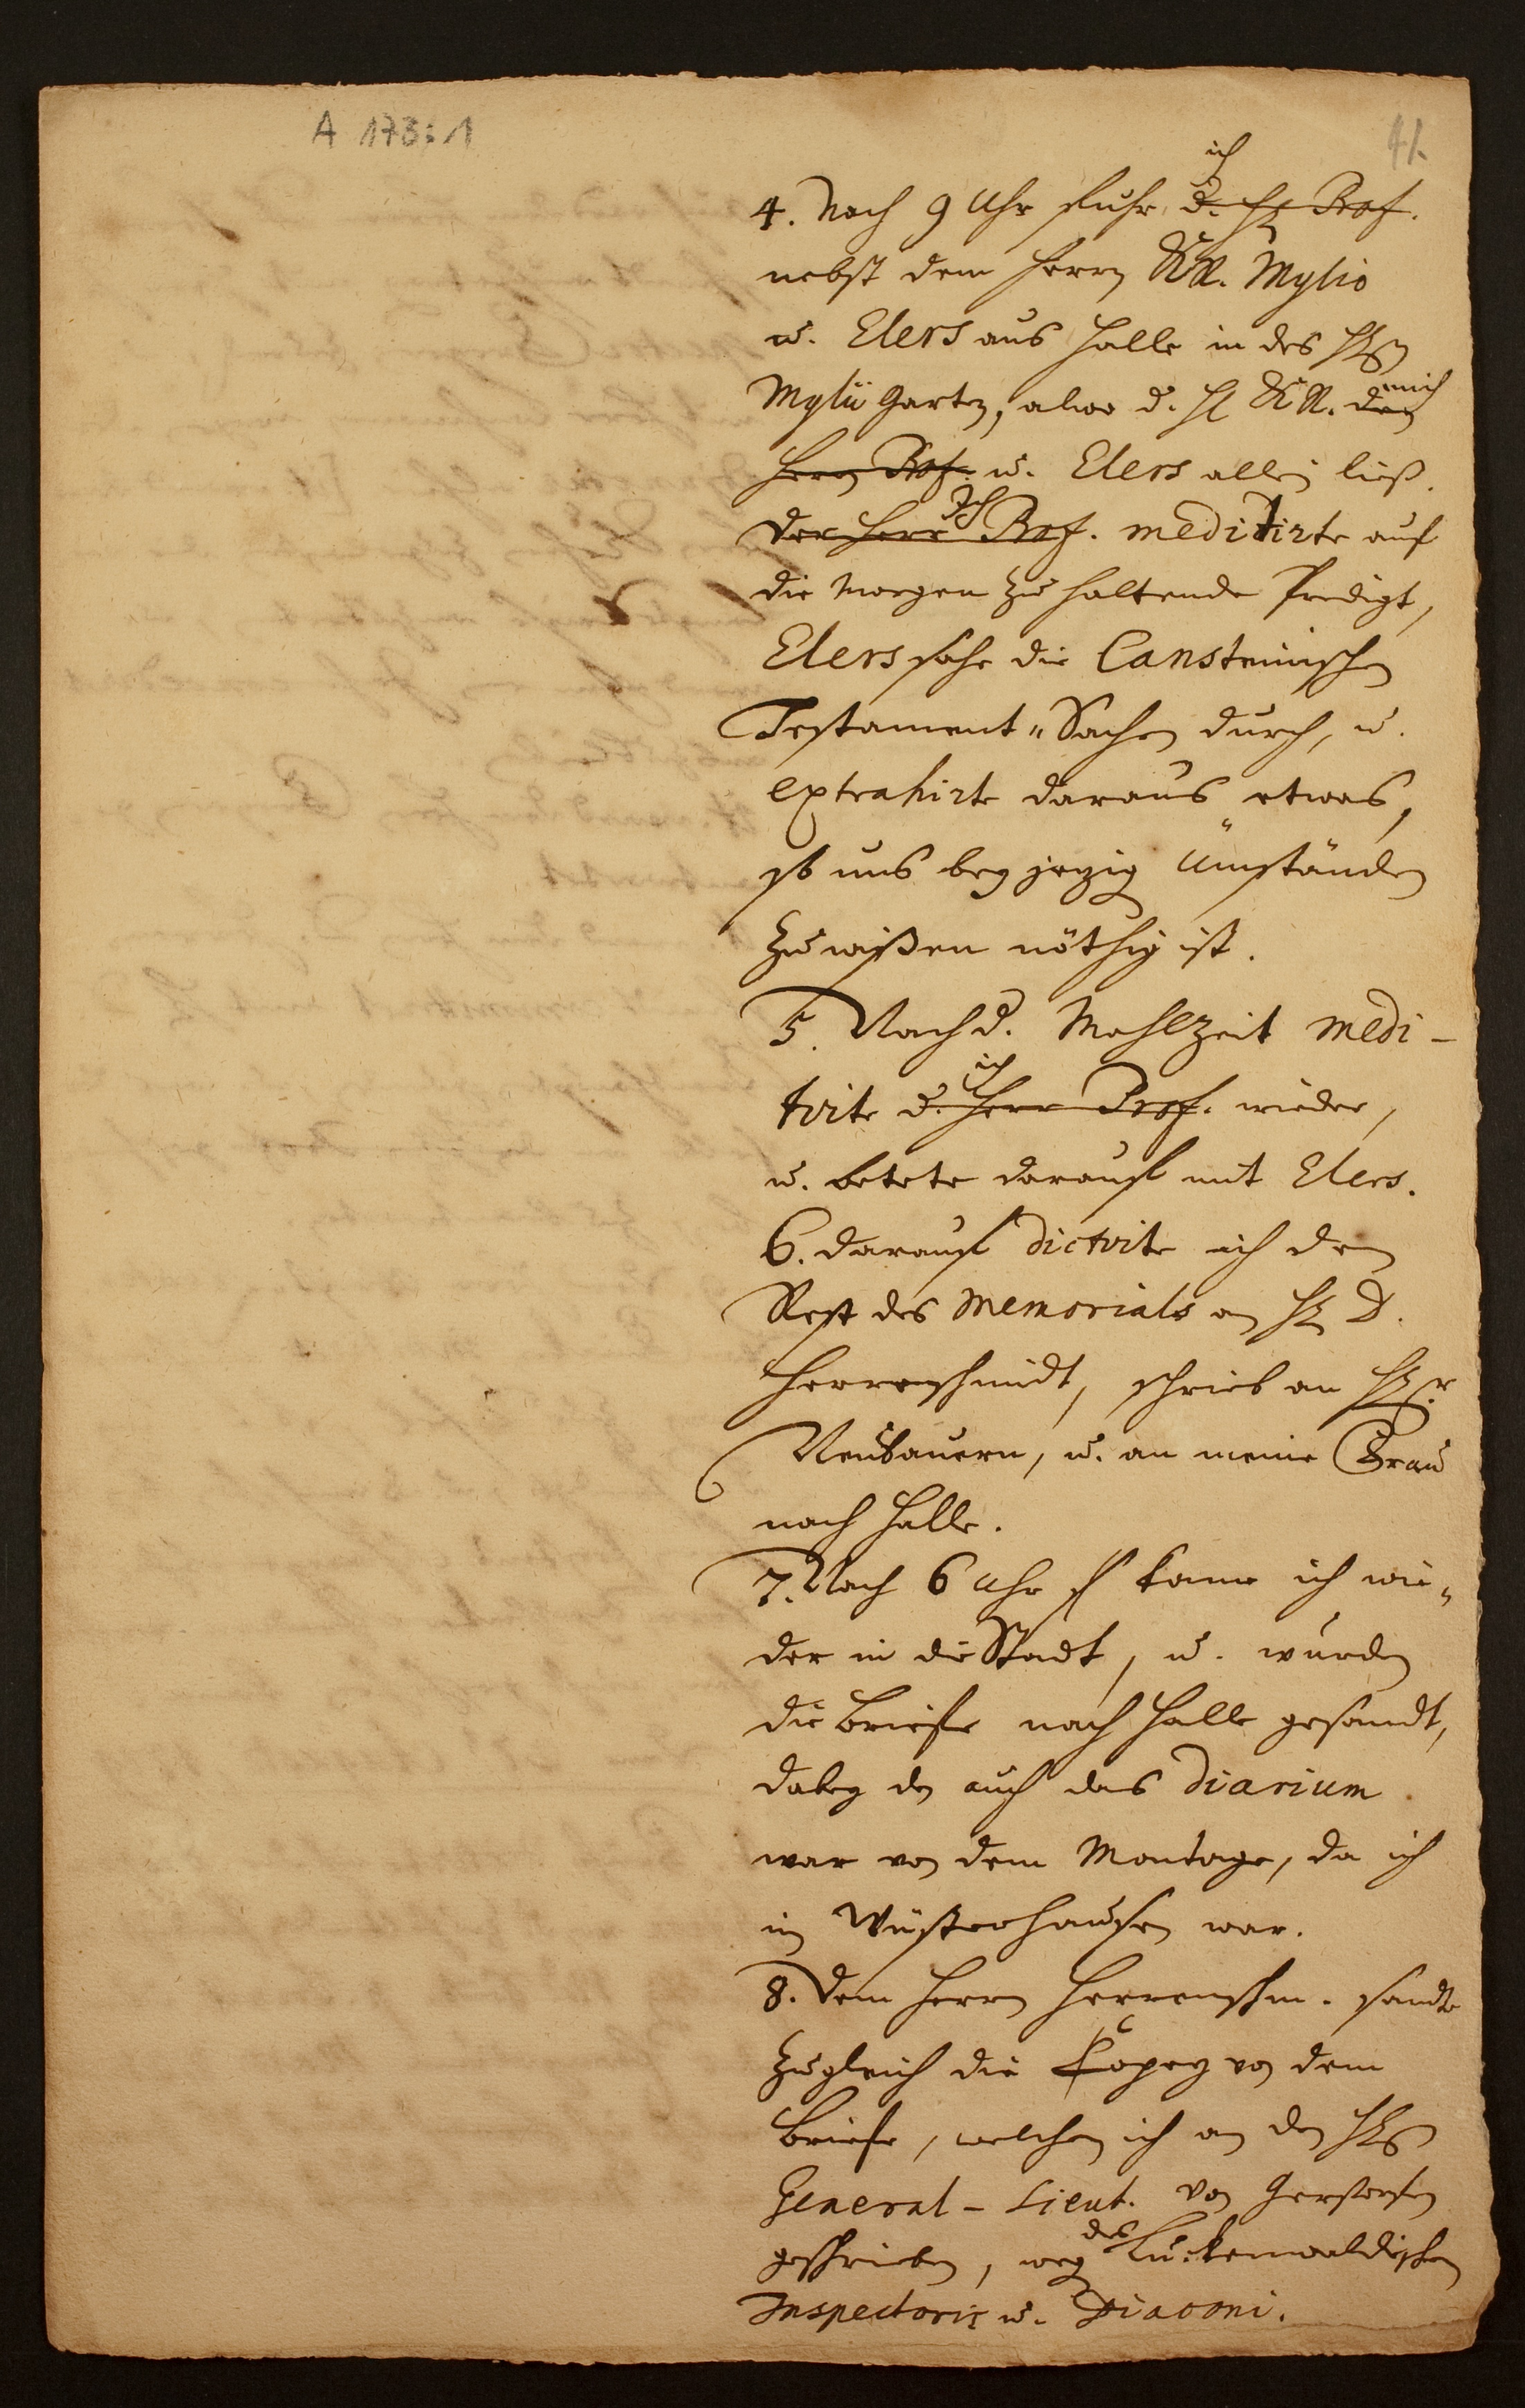 A 173:1
41.
ich
4. Nach 9 Uhr fuhr d. H. Prof.
nebst dem Herrn KR. Mylio
u. Elers aus Halle in des H.
Mylii Garten, alwo d. H. KR. den mich
Herrn Prof. u. Elers allein ließ.
Der Herr Ich Prof. meditirte auf
die morgen zu haltende Predigt,
Elers sahe die Cansteinischen
Testament-Sachen durch, u.
extrahirte daraus etwas,
so uns bey jezig Umständen
zu wißen nöthig ist.
5. Nach d. Mahlzeit medi-
ich
tirte d. Herr Prof. wieder,
u. betete darauf mit Elers.
6. Darauf dictirte ich den
Rest des Memorials an H. D.
Herrenschmidt, schrieb an H.
Neubauern, u. an meine Frau
nach Halle.
7. Nach 6 Uhr kame ich wie-
der in die Stadt, u. wurden
die Briefe nach Halle gesandt,
dabey den auch das Diarium
war von dem Montage, da ich
in Wusterhausen war.
8. Dem Herrn Herrenschm. sandte
zugleich die Copey von dem
Briefe, welchen ich an den H.
General-Lieut. von Gersdorfen
des
geschrieben, weg Luckenwaldischen
Inspectoris u. Diaconi.